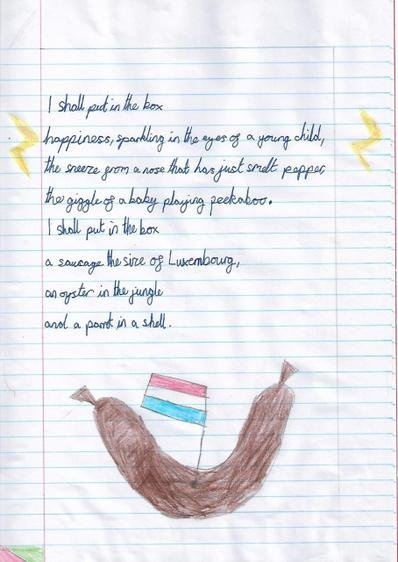 I shall put in the box
happiness, sparkling in the eyes of a young child,
the sneeze from a nose that has just smelt pepper,
the giggle of a baby playing peekaboo.
I shall put in the box
a saucage the size of Luxembourg,
an oyster in the jungle
and a parrot in a shell.